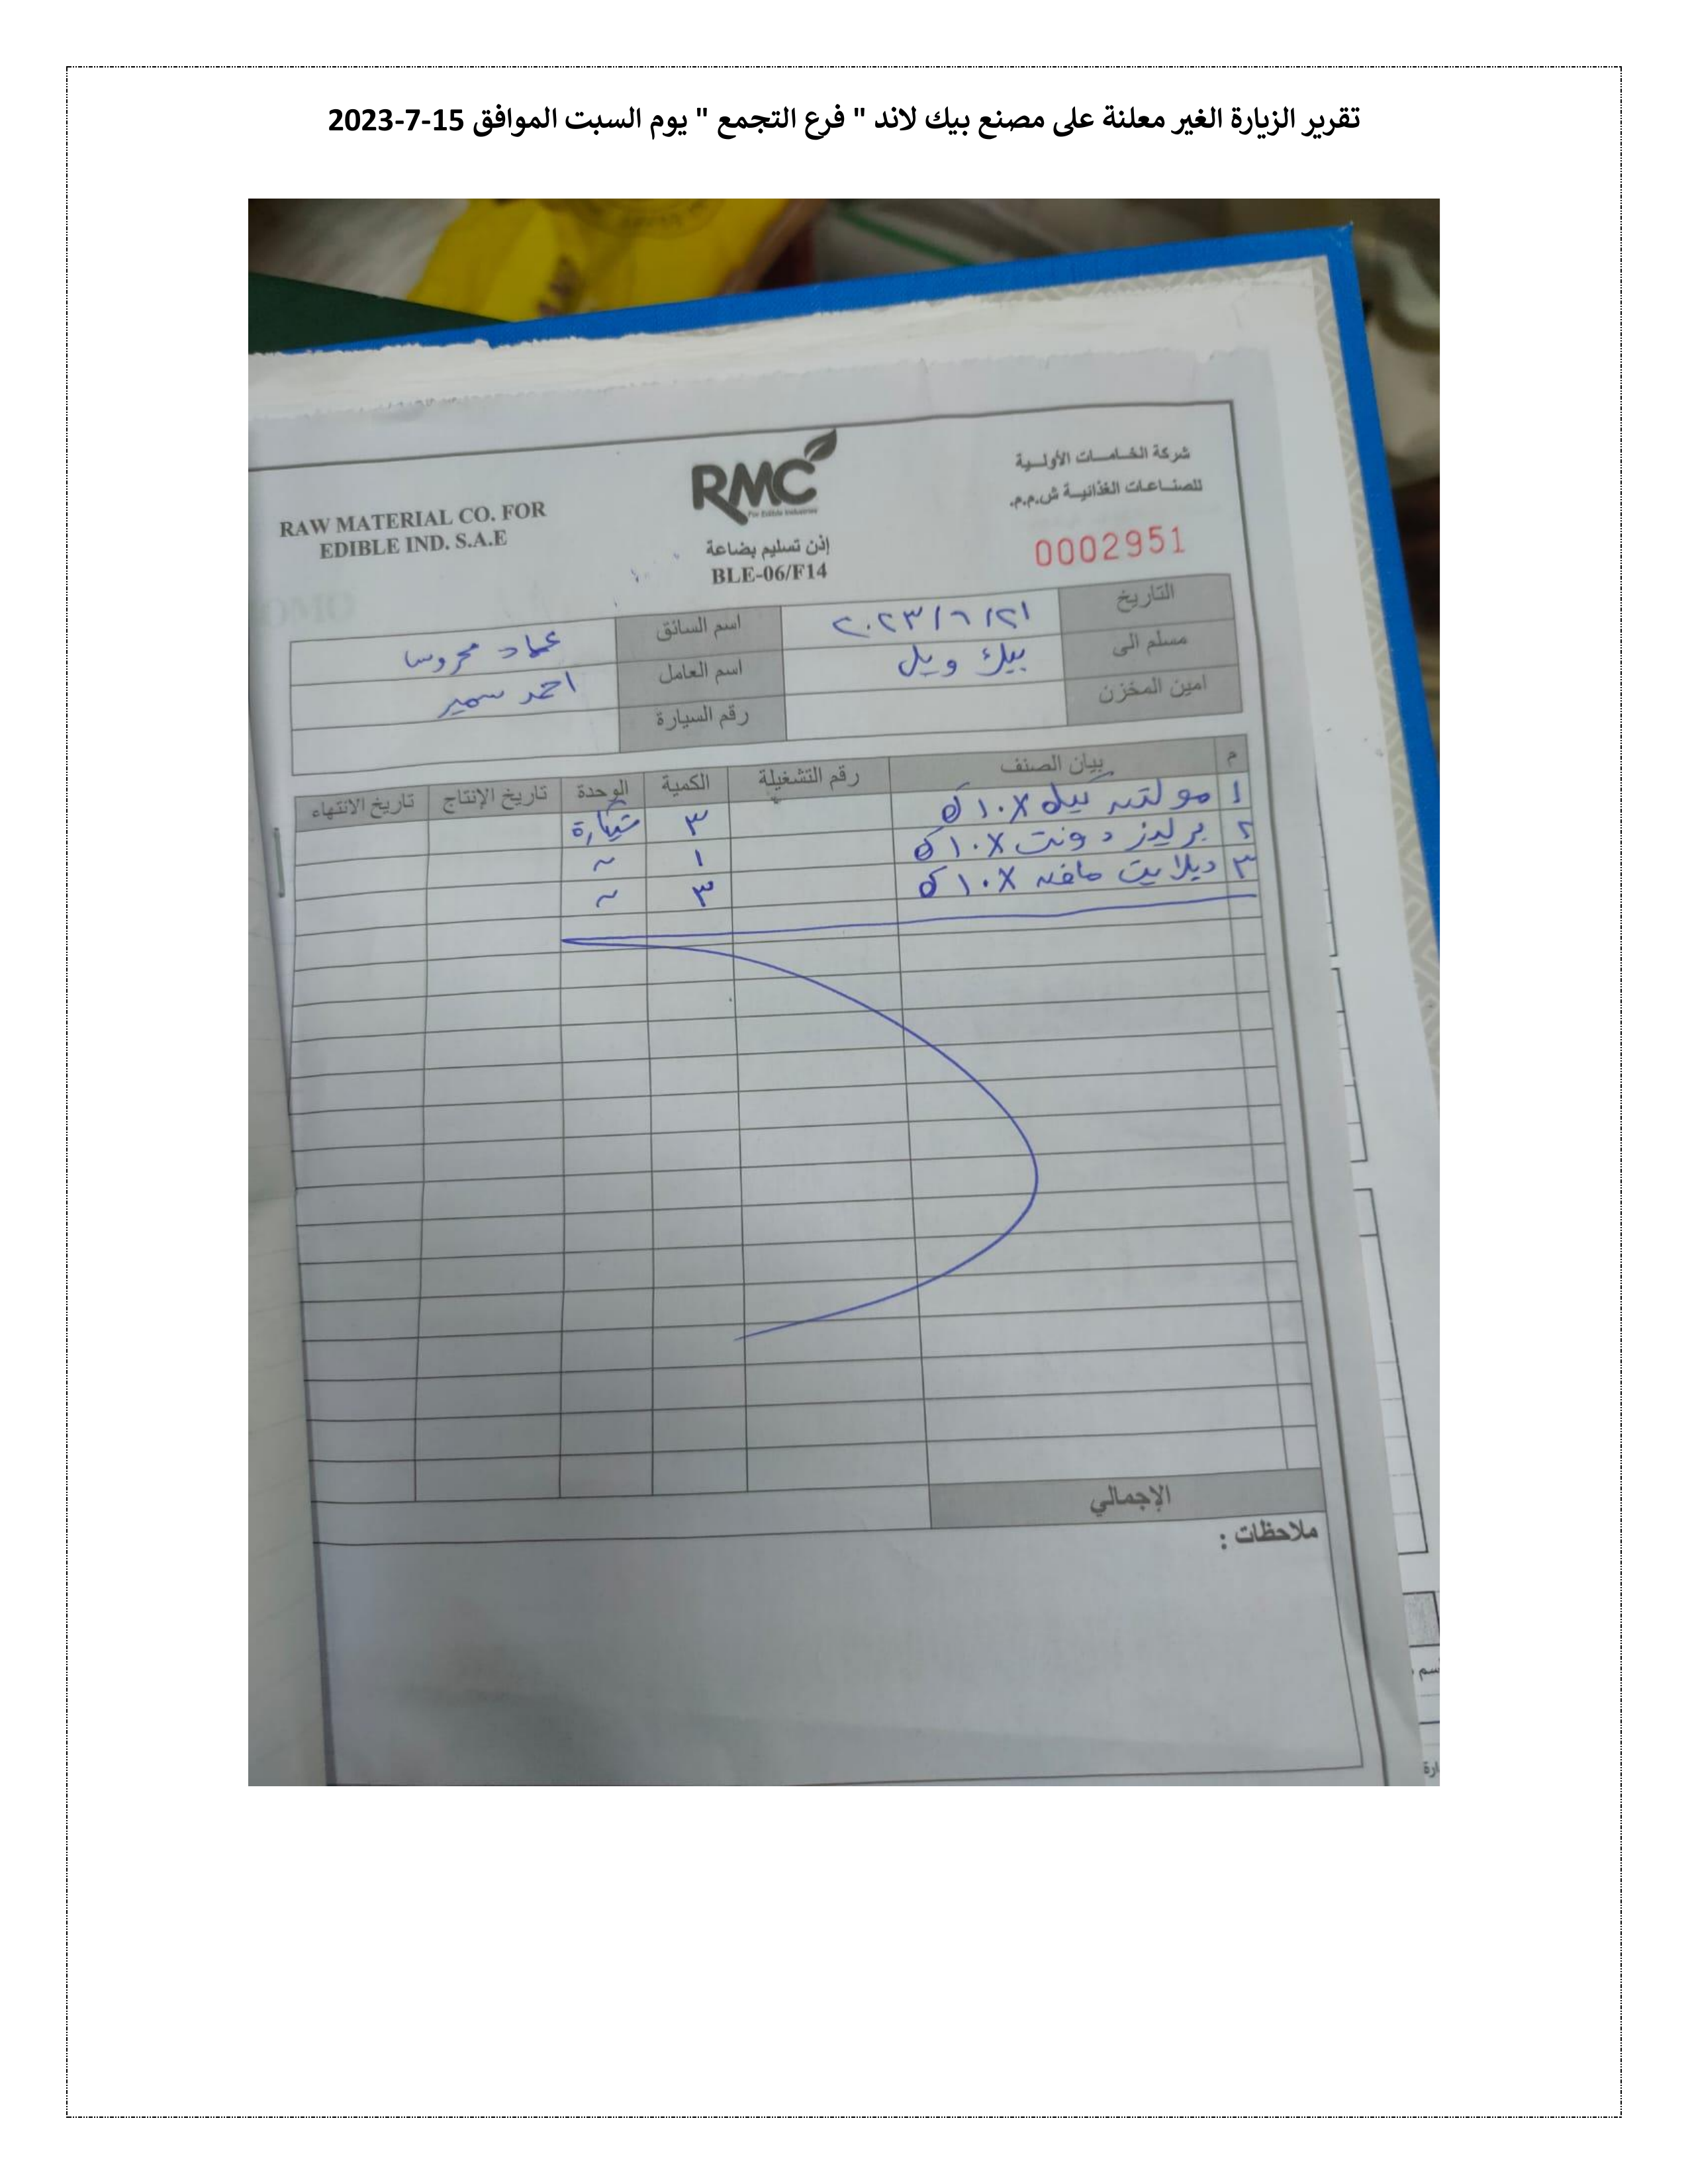 تقرير الزيارة الغير معلنة على مصنع بيك لاند " فرع التجمع " يوم السبت الموافق 15-7-2023
شركة الخامات الأولية
للصناعات الغذائية ش.م.م.
0002951
RMC
For Edible Industries
إذن تسليم بضاعة
BLE-06/F14
RAW MATERIAL CO. FOR
EDIBLE IND. S.A.E
التاريخ ٢٠٢٣/٦/٢١ اسم السائق عماد محروسا
مسلم الى بيك ويل اسم العامل احمد سمير
امين المخزن رقم السيارة
م بيان الصنف رقم التشغيلة الكمية الوحدة تاريخ الإنتاج تاريخ الانتهاء
١ مولتن كيك X ١٠ ك ٣ شيكارة
٢ بريدز دونت X ١٠ ك ١ ~
٣ ديلايت مافن X ١٠ ك ٣ ~
الإجمالي
ملاحظات :